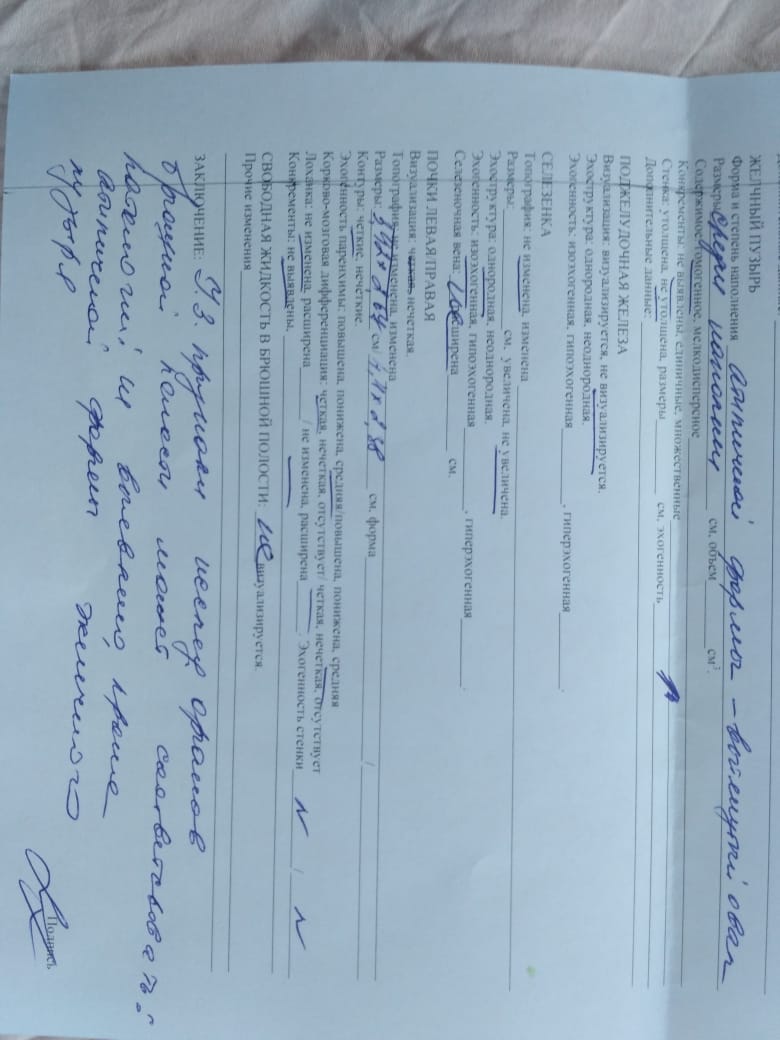 ЖЕЛЧНЫЙ ПУЗЫРЬ
Форма и степень наполнения атипичной формы – вытянутый овал
Размеры средн наполнен см, объем см³.
Содержимое: гомогенное, мелкодисперсное
Конкременты: не выявлены, единичные, множественные
Стенка: утолщена, не утолщена, размеры см, эхогенность
Дополнительные данные:
ПОДЖЕЛУДОЧНАЯ ЖЕЛЕЗА
Визуализация: визуализируется, не визуализируется.
Эхоструктура: однородная, неоднородная.
Эхогенность, изоэхогенная, гипоэхогенная , гиперэхогенная .
СЕЛЕЗЕНКА
Топография: не изменена, изменена
Размеры: см. увеличена, не увеличена.
Эхоструктура: однородная, неоднородная.
Эхогенность, изоэхогенная, гипоэхогенная , гиперэхогенная .
Селезеночная вена: не расширена см.
ПОЧКИ ЛЕВАЯ/ПРАВАЯ
Визуализация: четкая, нечеткая.
Топография: не изменена, изменена
Размеры: см / см, форма /
Контуры: четкие, нечеткие.
Эхогенность паренхимы: повышена, понижена, средняя/повышена, понижена, средняя
Корково-мозговая дифференциация: четкая, нечеткая, отсутствует/ четкая, нечеткая, отсутствует
Лоханка: не изменена, расширена / не изменена, расширена . Эхогенность стенки N / N
Конкременты: не выявлены.
СВОБОДНАЯ ЖИДКОСТЬ В БРЮШНОЙ ПОЛОСТИ: не визуализируется.
Прочие изменения
ЗАКЛЮЧЕНИЕ: УЗ признаки исслед органов
брюшной полости может соответствовать:
патологий не выявлено, кроме
атипичной формы желчного
пузыря
Подпись